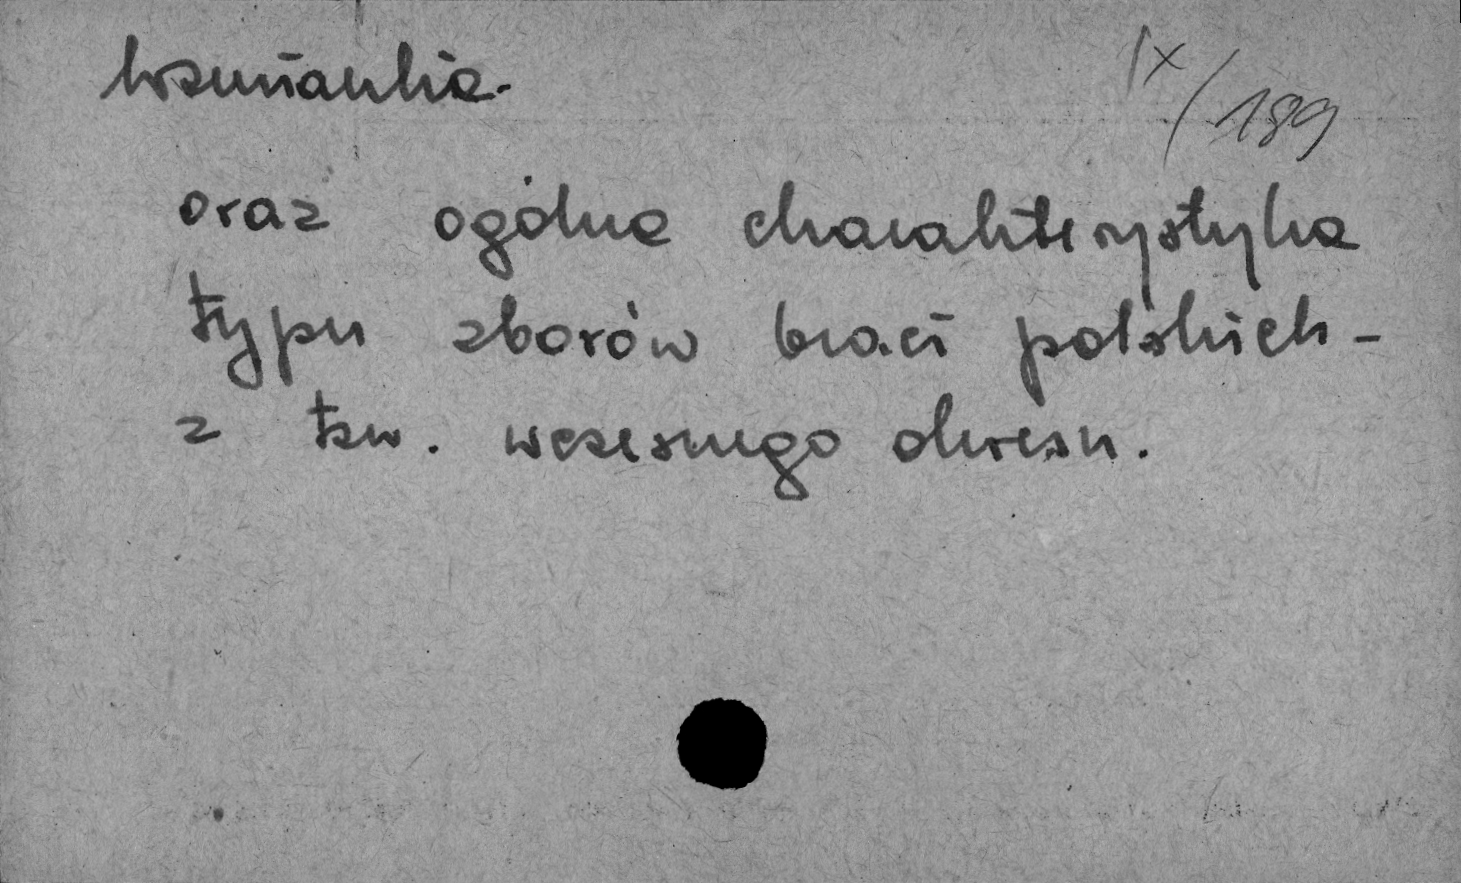 Wzmianka.
IX/189
oraz ogólna charakterystyka
typu zborów braci polskich –
z tzw. wczesnego okresu.